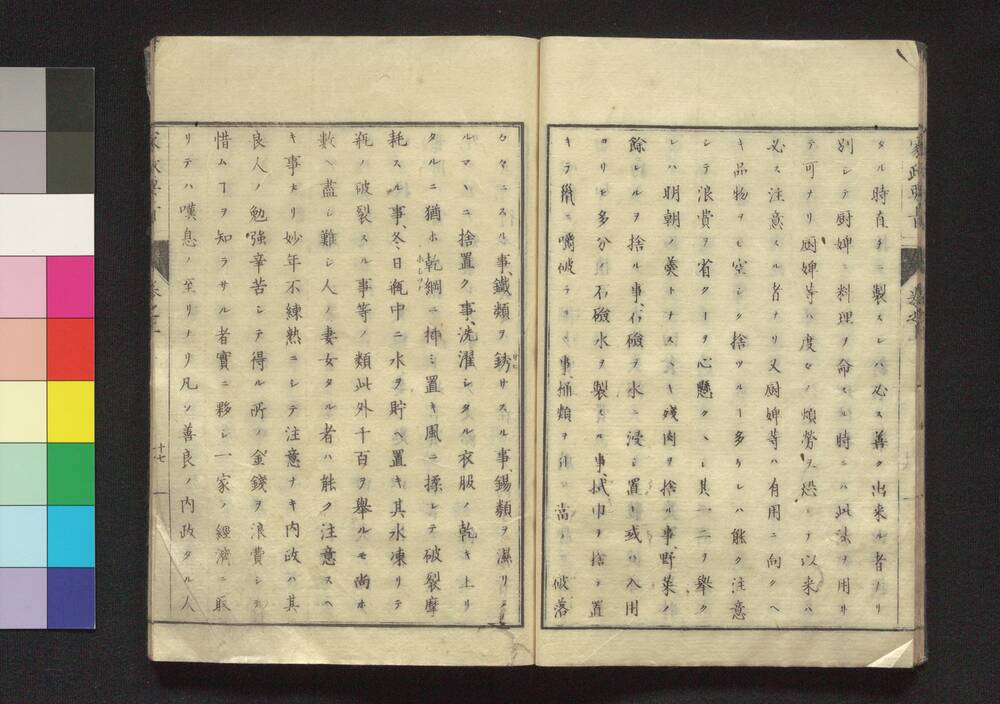 タル時直チニ製スレハ必ス善ク出来ル者ナリ
別シテ厨婢ニ料理ヲ命スル時ニハ此法ヲ用サ
テ可ナリ厨婢等ハ度々ノ煩勞ヲ恐レテ以来ハ
必ス注意スル者ナリ又厨婢等ハ有用ニ向クヘ
キ品物ヲモ空シク捨ツルヿ多ケレハ能ク注意
シテ浪費ヲ省クヿヲ心懸クヘシ其一二ヲ舉ク
レハ明朝ノ羹トナスヘキ残肉ヲ捨ル事、野菜ノ
餘レルヲ捨ル事、石鹸ヲ水ニ浸シ置キ或ハ入用
ヨリモ多分ノ石鹸水ヲ製スル事、拭巾ヲ捨テ置
キテ鼠ニ嚙破ラ 事、桶類ヲ 高 破落
々々ニスル事、鐵類ヲ銹サスル事、錫類ヲ濕リタ
ルマヽニ捨置ク事、洗濯シタル衣服ノ乾キ上リ
タルニ猶ホ乾綱ニ掛ミ置キ風ニ揉レテ破裂摩
耗スル事、冬日瓶中ニ水ヲ貯ヘ置キ其水凍リテ
瓶ノ破裂スル事等ノ類此外千百ヲ舉ルモ尚ホ
數ヘ盡シ難シ人ノ妻女タル者ハ能ク注意スヘ
キ事ナリ妙年不練熟ニシテ注意ナキ内政ハ其
良人ノ勉強辛苦シテ得ル所ノ金錢ヲ浪費シテ
惜ムヿヲ知ラサル者實ニ夥シ一家ノ經濟ニ取
リテハ嘆息ノ至リナリ凡ソ善良ノ内政タル人
十七